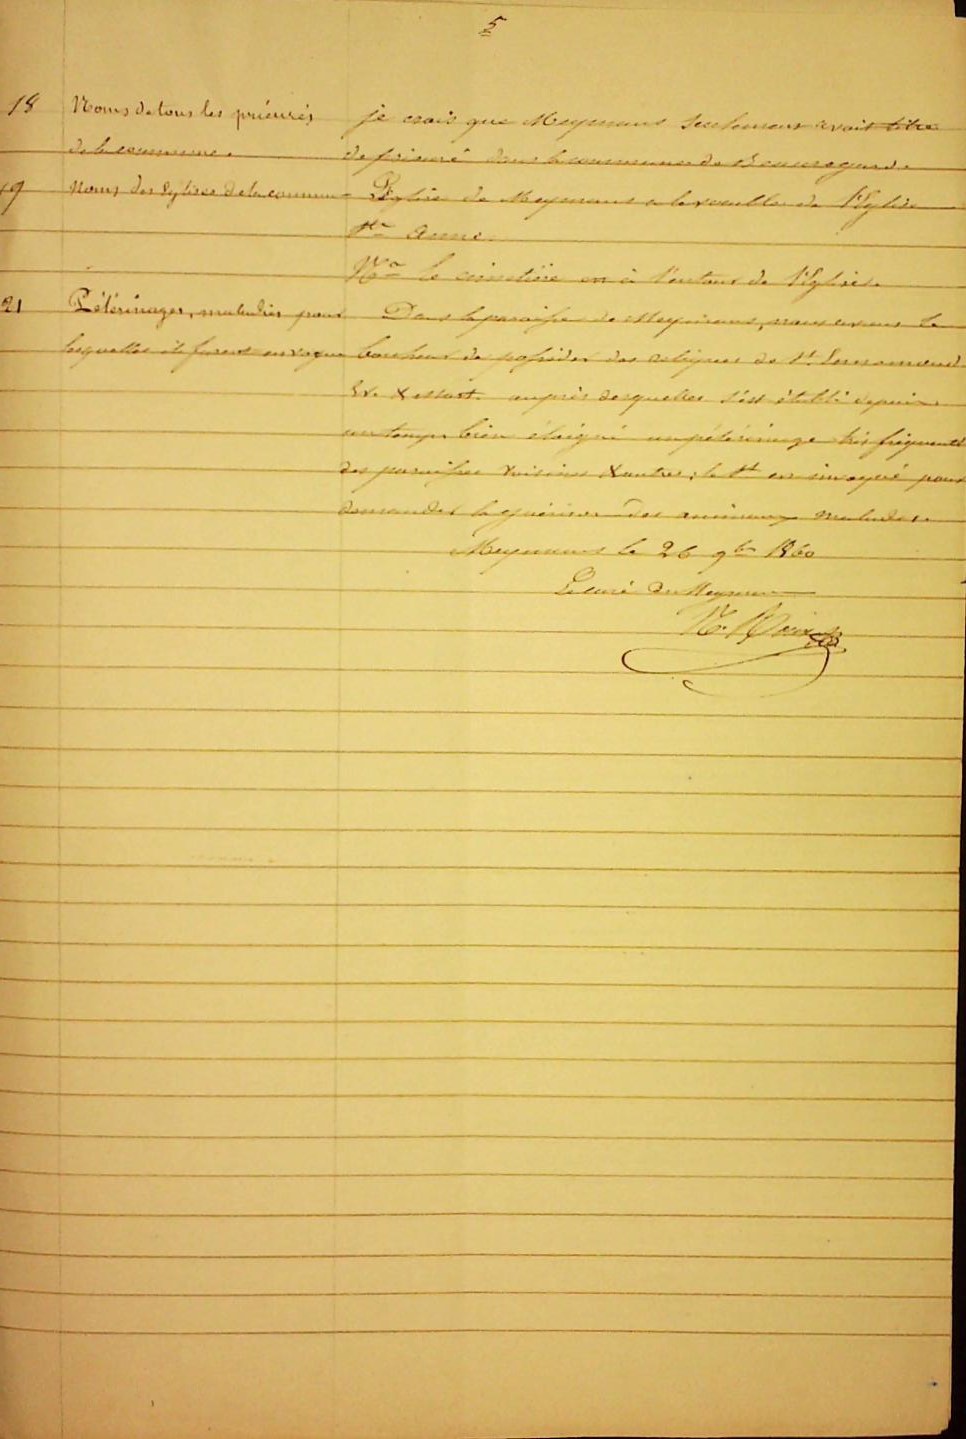 5
18 Noms de tous les prieurés je crois que Meymans seulement avait titre
de la commune. de prieuré dans la commune de Beauregard.
19 Noms des Eglises de la commune L'Eglise de Meymans a le vocable de l'Eglise
Ste Anne.
Na le cimetière est à l'entour de l'Eglise.
21 Pélérinages, maladies pour Dans la paroisse de Meymans, nous avons le
lesquelles ils furent en vogue bonheur de posséder des reliques de St
Ev. & Mart. auprès desquelles s'est établi depuis
un temps bien éloigné un pélérinage très fréquenté
des paroisses voisines & autres; le St est invoqué pour
demander la guérison des animaux malades.
Meymans le 26 9bre 1860
Le curé de Meymans